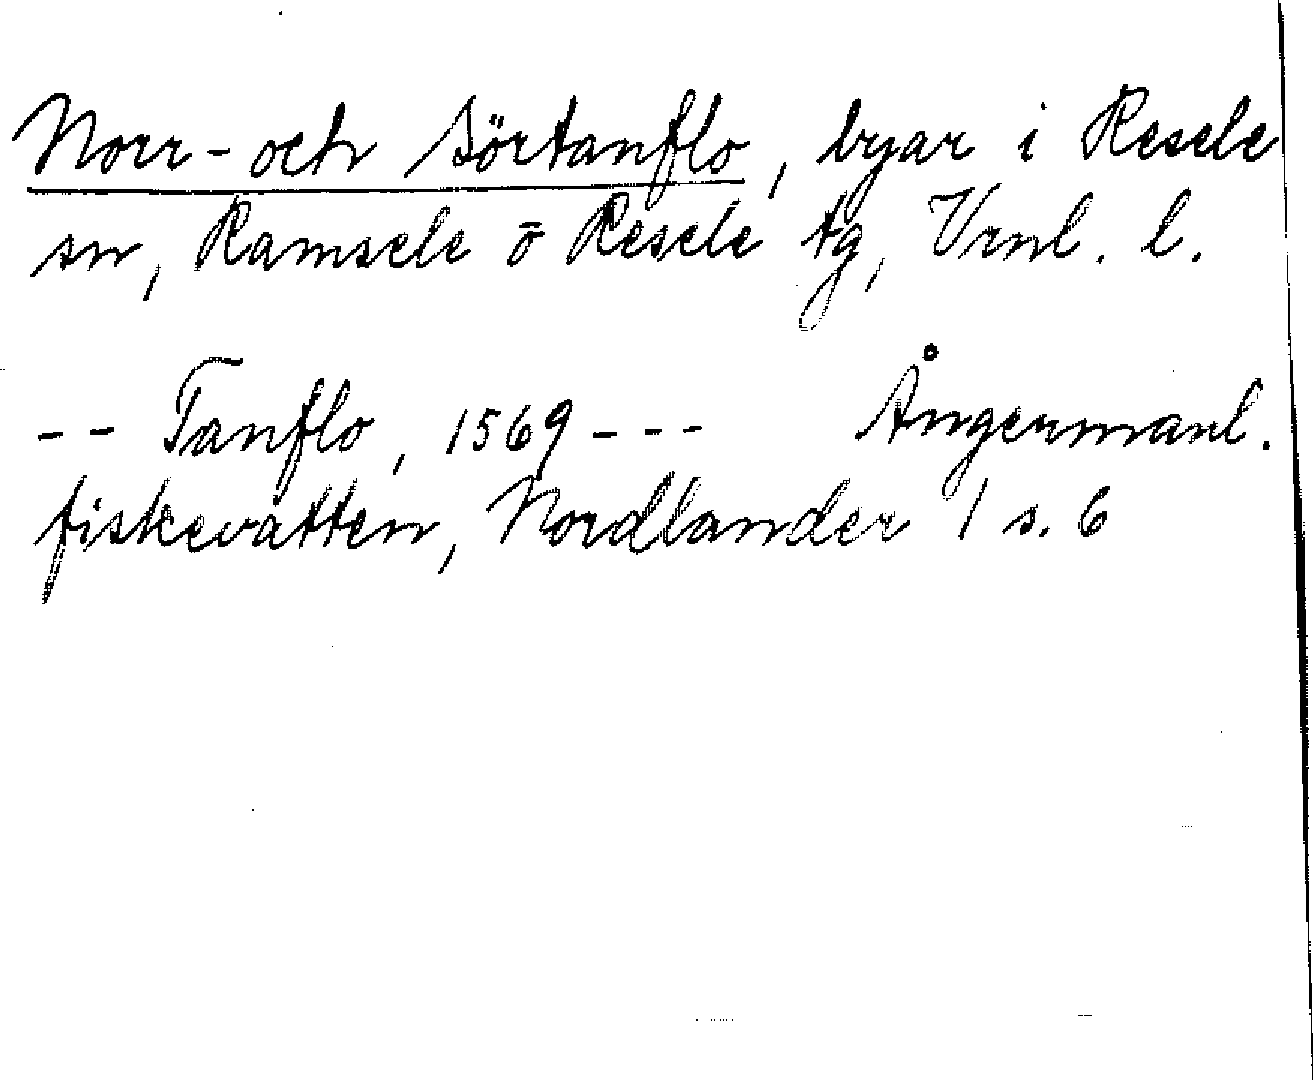 Norr- och Sörtanflo, byar i Resele
sn, Ramsele o Resele tg, Vrnl. l.
-- Tanflo, 1569 --- Ångermanl.
fiskevatten, Nordlander 1 s. 6